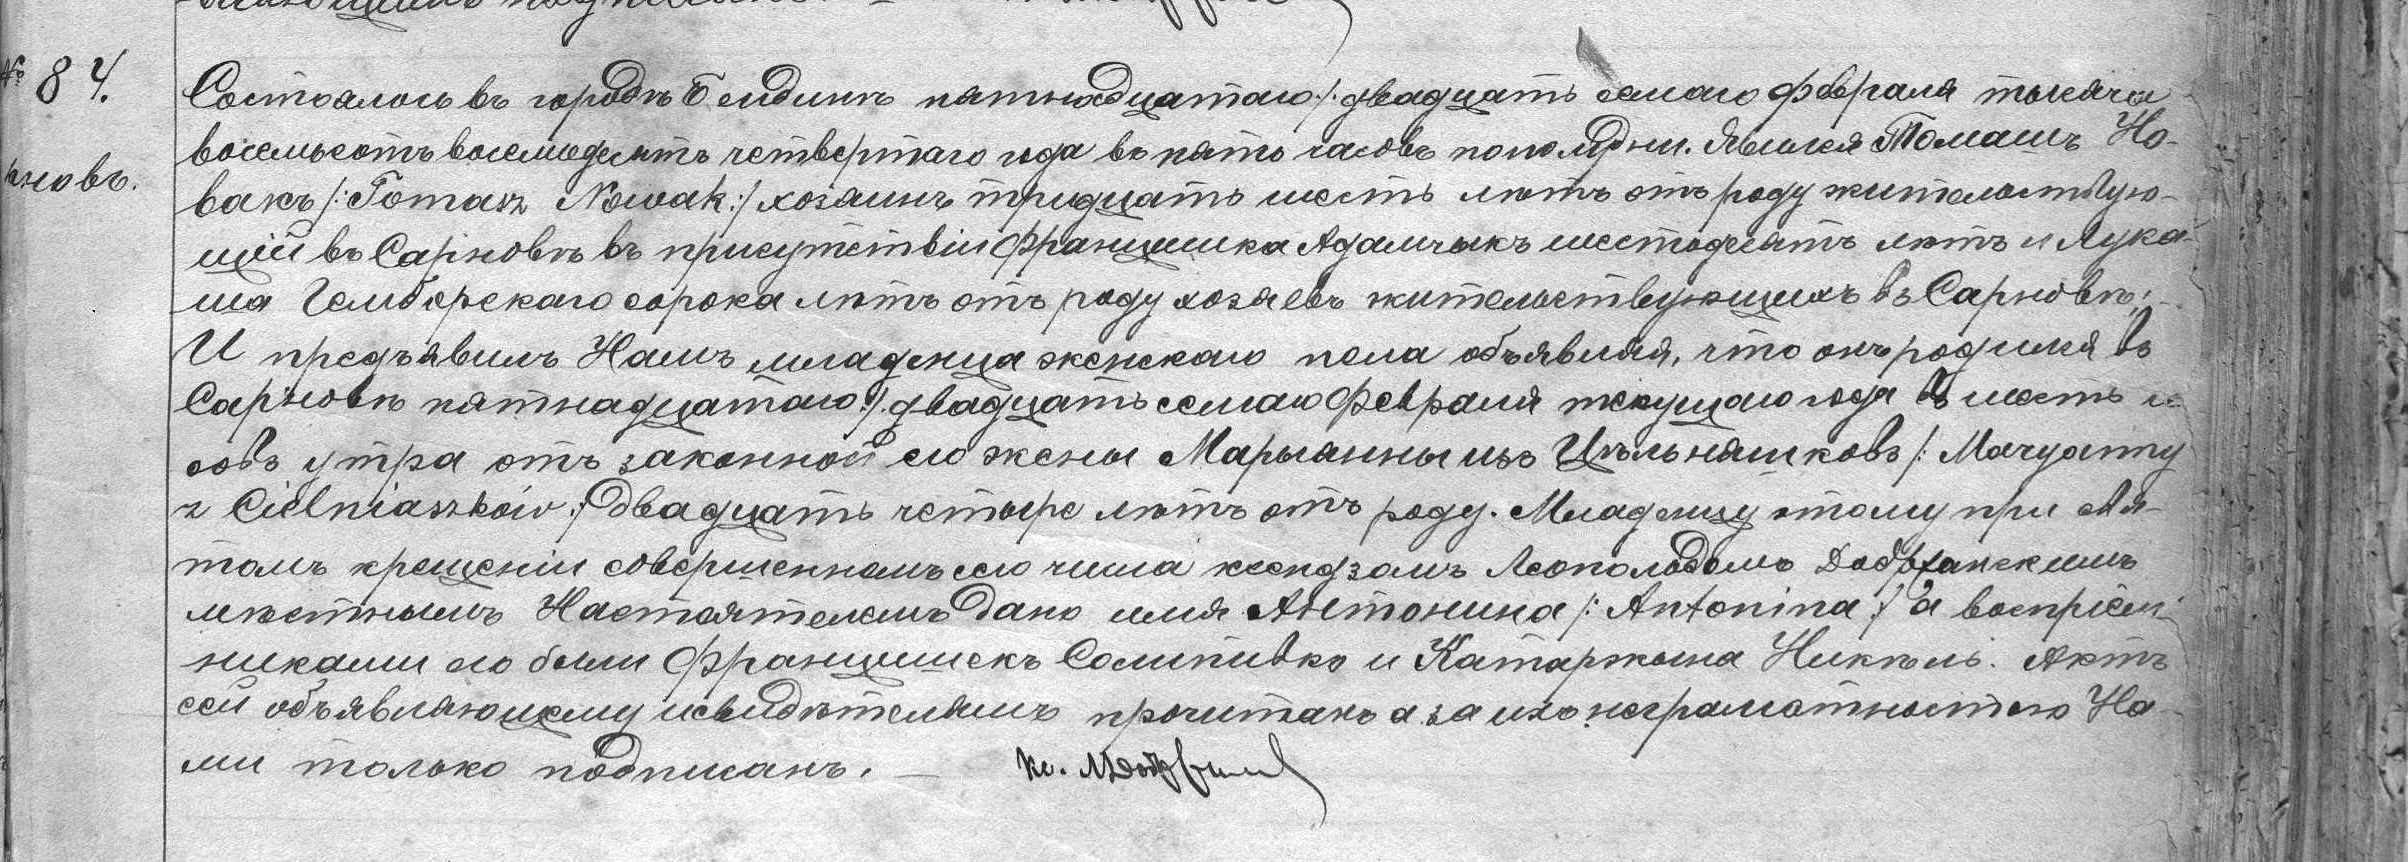 № 84.
Состоялось въ городѣ Бендинѣ пятнадцатаго /: двадцать седьмаго Февраля тысяча
восемьсотъ восемьдесятъ четвертаго года въ пять часовъ пополудни. Явился Томашъ Но-
вакъ /: Tomasz Nowak :/ хозяинъ тридцать шесть лѣтъ отъ роду жительствую-
щій въ Сарновѣ въ присутствіи Францишка Адамчыкъ шестьдесятъ лѣтъ и Лука-
ша Гемборскаго сорока лѣтъ отъ роду хозяевъ жительствующихъ въ Сарновѣ;
И предъявилъ Намъ младенца женскаго пола объявляя, что онъ родился въ
Сарновѣ пятнадцатаго /: двадцать седьмаго Февраля текущаго года въ шесть ча
совъ утра отъ законной его жены Марыанны изъ Цѣльняшковъ /: Maryanny
z Cielniaszków :/ двадцать четыре лѣтъ отъ роду. Младенцу этому при Свя-
томъ крещеніи совершенномъ сего числа ксендзомъ Леопольдомъ Добржанскимъ
мѣстнымъ Настоятелемъ дано имя Антонина /: Antonina :/ а воспріем-
никами его были Францишекъ и Катаржына Никѣль. Актъ
сей объявляющему и свидѣтелямъ прочитанъ а за ихъ неграмотностью На-
ми только подписанъ. —